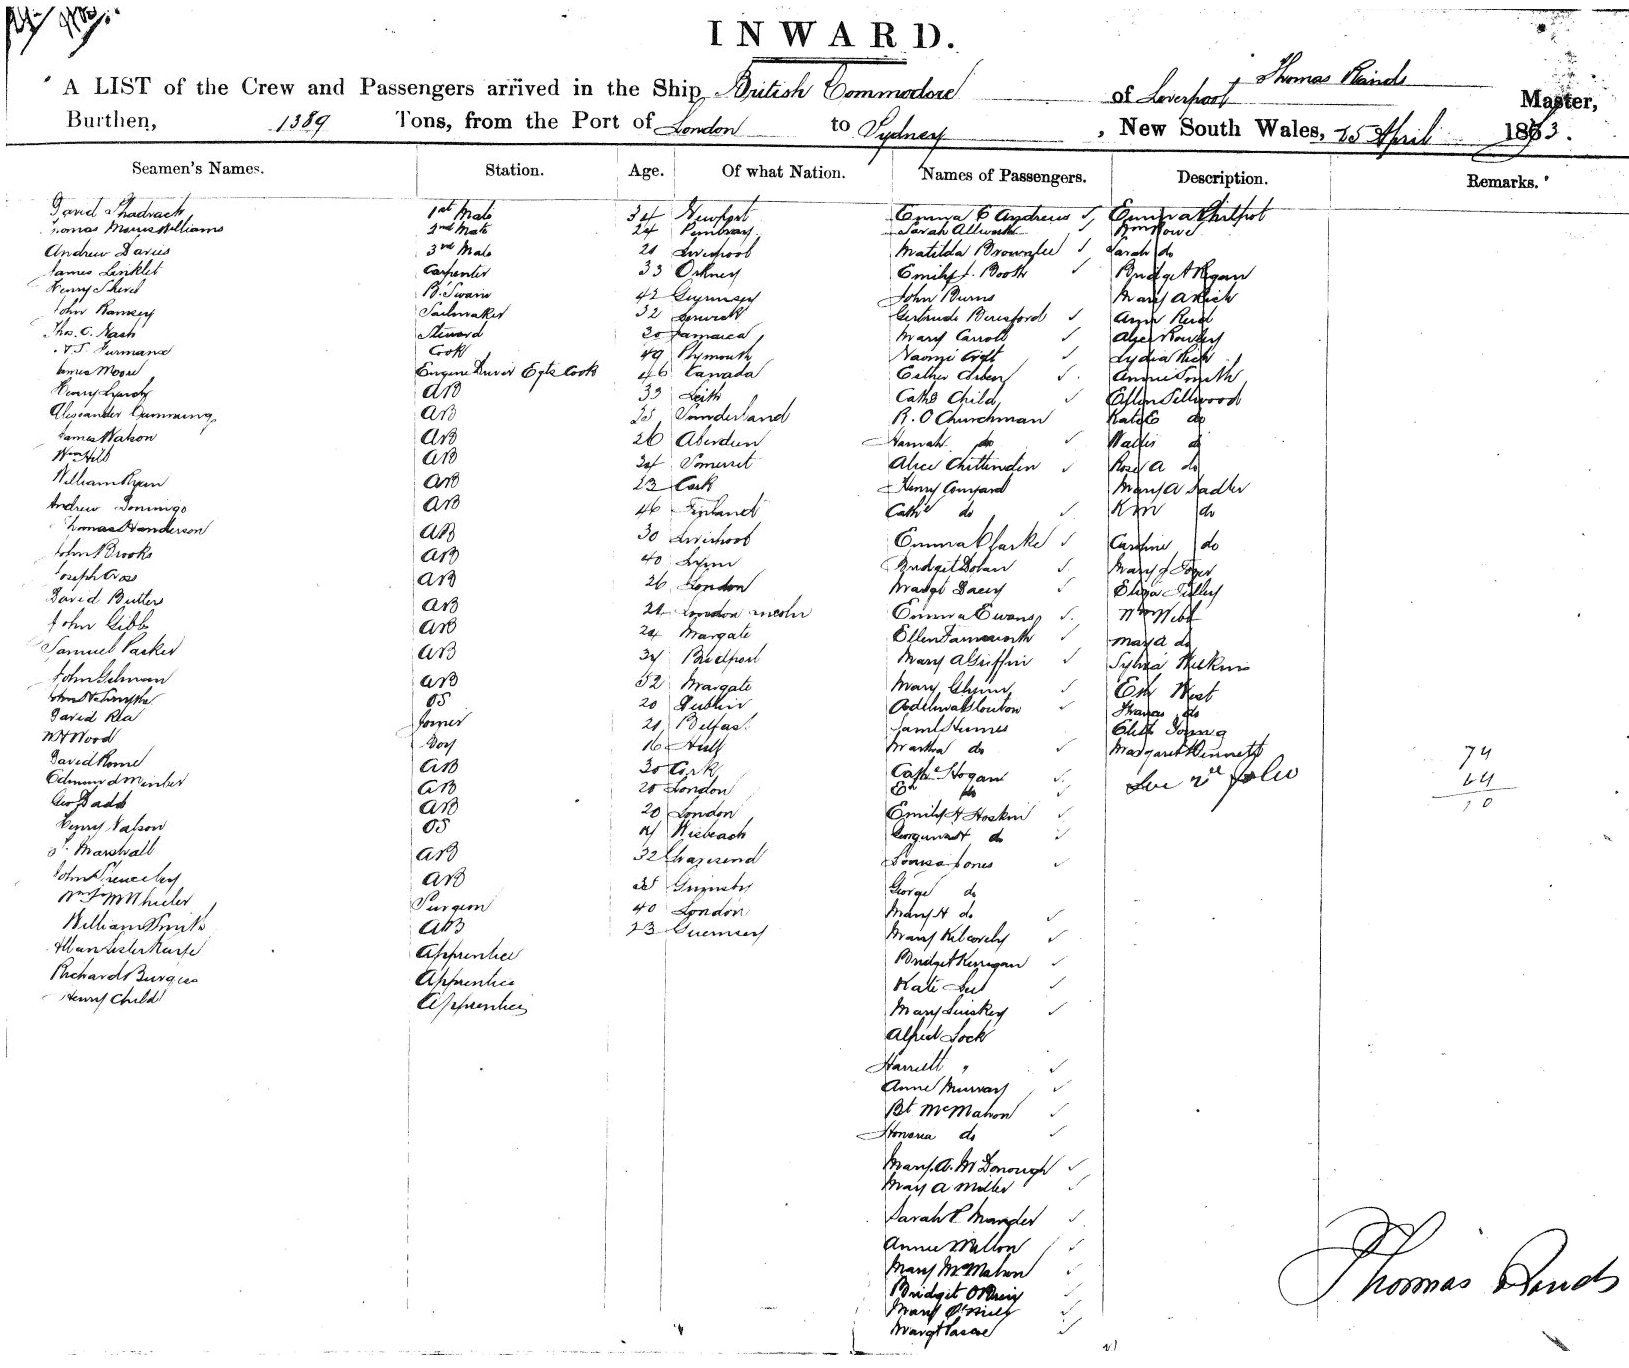 INWARD.
Thomas Rands
A LIST of the Crew and Passengers arrived in the Ship British Commodore of Liverpool Master,
Burthen, 1389 Tons, from the Port of London to Sydney, New South Wales, 25 April 1883.
Seamen's Names. Station. Age. Of what Nation. Names of Passengers. Description. Remarks.
David Shadrach 1st Mate 34 Newport Emma E Andrews Emma Philpot
Thomas Morris Williams 2nd Mate 24 Pembray Sarah Allwork Wm Rowe
Andrew Davies 3rd Mate 21 Liverpool Matilda Brownlee Sarah do
James Linklet Carpenter 33 Orkney Emily J. Booth Bridget Regan
Henry B. Swain 42 Guernsey John Burns Mary A Rich
John Ramsey Sailmaker 32 Lerwick Gertrude Beresford Ann Reid
Thos. C. Nash Steward 30 Jamaica Mary Carroll Alice Rowley
Furmand Cook 49 Plymouth Naomi Croft Lydia Rich
James Moore Engine Driver & Cook 46 Canada Esther Annie Smith
Henry Lynch AB 33 Leith Cathe Child Ellen Sellwood
Alexander Cumming AB 35 Sunderland R. O Churchman Kate E do
James Watson AB 26 Aberdeen Hannah do Wallis do
Wm Hill AB 34 Somerset Alice Chittenden Rose A do
William Ryan AB 23 Cork Henry Conyard Mary A Sadler
Andrew Domingo AB 46 Finland Cathe do Km do
Thomas Handerson AB 30 Liverpool Emma Clarke Caroline do
John Brooks AB 40 Lynn Bridget Dolan Mary J
Joseph Cross AB 26 London Margt Dacey Eliza Tilley
David Butters AB 21 London Lincoln Emma Evans Wm Webb
John Gibbs AB 24 Margate Ellen Farnsworth Mary A do
Samuel Parker AB 34 Bridport Mary A Griffin Sylvia Wilkins
John Gilman AB 52 Margate Mary Glynn Eh West
OS 20 Dublin Frances do
David Rea Joiner 21 Belfast Saml Humes Eliz Young
W H Wood Boy 16 Hull Martha do Margaret Bennett
David Rome AB 30 Cork Cathe Hogan See 2nd folio
Edmund Minter AB 20 London do
Geo Dadd AB 20 London Emily H Hoskin
Henry Watson OS Wisbeach Georgina H do
Marshall AB 32 Gravesend Louisa Jones
John AB 35 Grimsby George do
Wm Wheeler Surgeon 40 London Mary H do
William Smith AB 23 Guernsey Mary
Allan Lister Apprentice Bridget Kerrigan
Richard Burgess Apprentice Kate Lee
Henry Child Apprentice Mary Linskey
Alfred Lock
Harriett "
Anne Murray
Bt McMahon
Honoria do
Mary A. McDonough
Mary A Miller
Sarah P. Mander
Annie
Mary McMahon
Bridget
Mary
Margt Pascoe
74
64
10
Thomas Rands